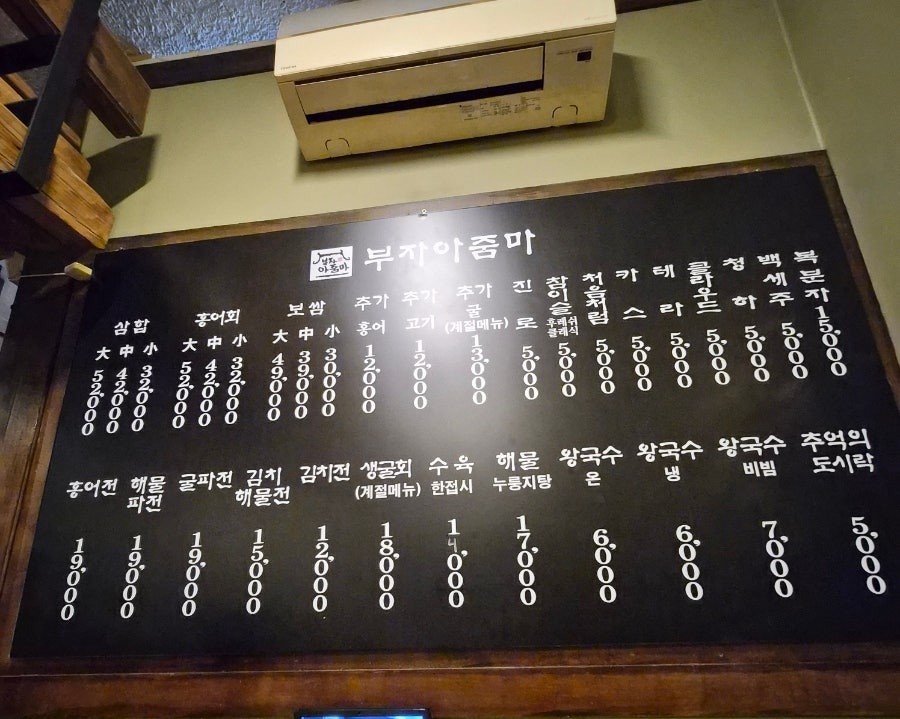 부자아줌마
부자아줌마
삼합
大 中 小
52,000 42,000 32,000
홍어회
大 中 小
52,000 42,000 32,000
보쌈
大 中 小
49,000 39,000 30,000
추가 홍어
12,000
추가 고기
12,000
추가 굴
(계절메뉴)
13,000
진로
5,000
참이슬
후레쉬
클래식
5,000
처음처럼
5,000
카스
5,000
테라
5,000
클라우드
5,000
청하
5,000
백세주
5,000
복분자
15,000
홍어전
19,000
해물
파전
19,000
굴파전
19,000
김치
해물전
15,000
김치전
12,000
생굴회
(계절메뉴)
18,000
수육
한접시
14,000
해물
누룽지탕
17,000
왕국수
온
6,000
왕국수
냉
6,000
왕국수
비빔
7,000
추억의
도시락
5,000